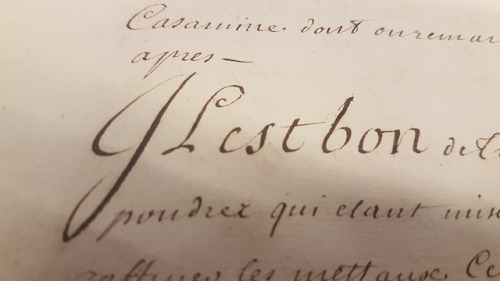 Casamine dont on remar
apres —
JL est bon de
poudrer qui etant mise
raffiner les mettaux. Ce